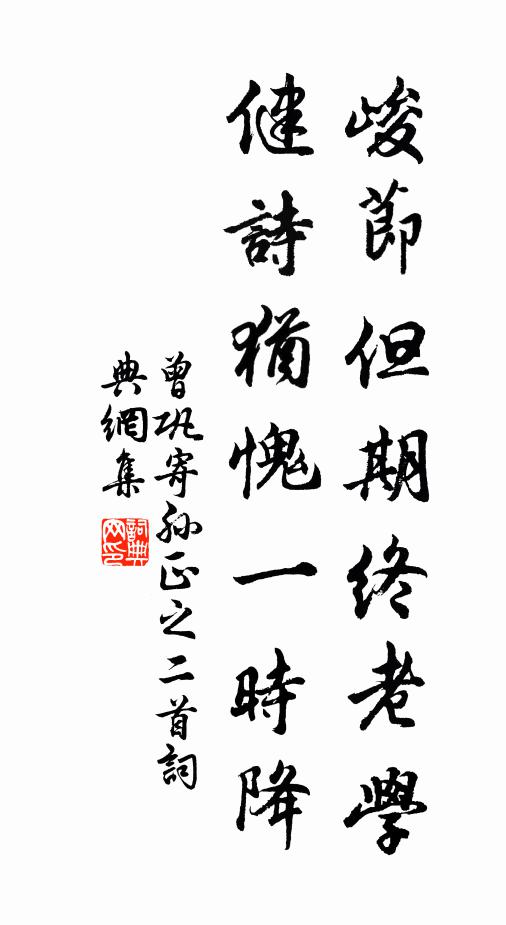 峻節但期終老學
健詩猶愧一時降
曾鞏寄孫正之二首詞
典網集
詞典
网印